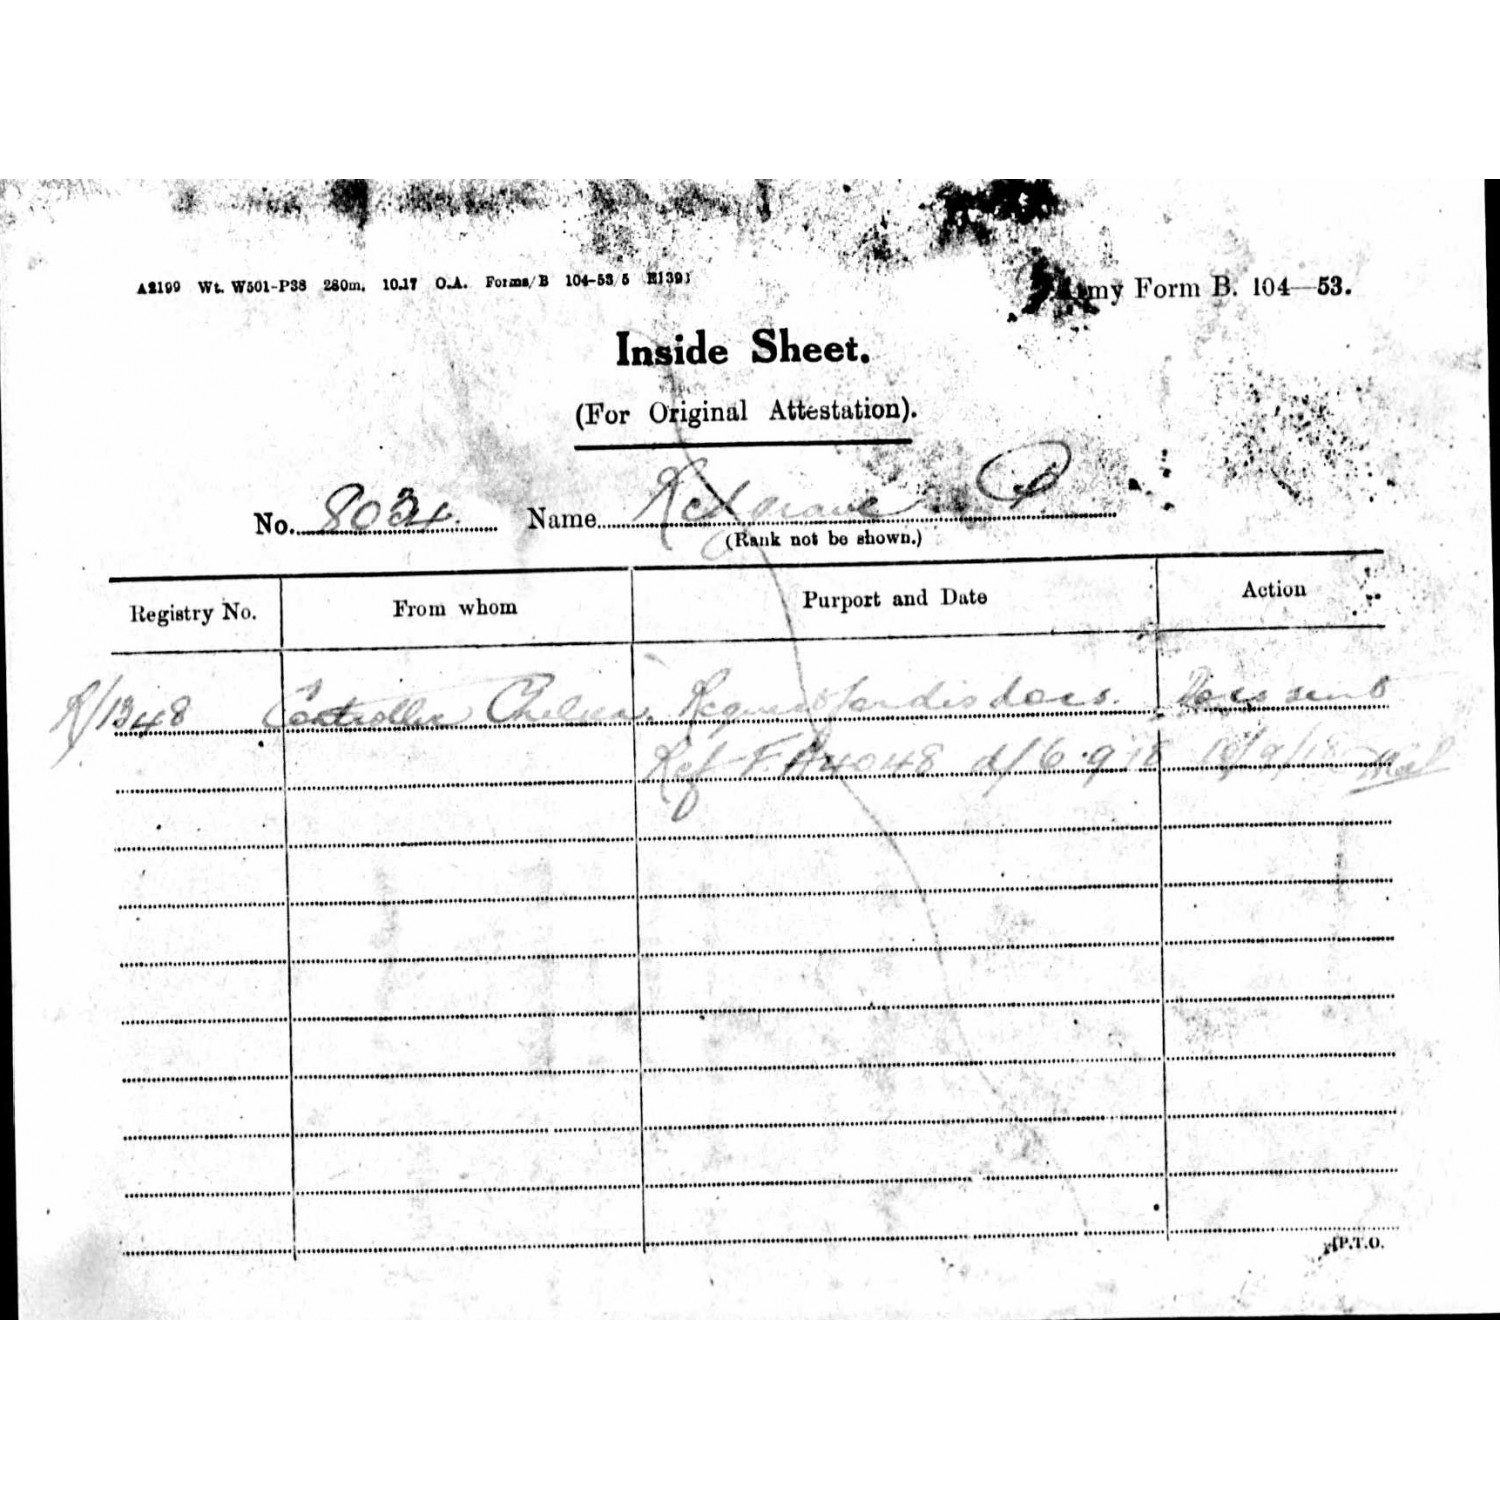 A2199 Wt. W501-P38 280m. 10.17 O.A. Forms/B 104-53/5 E1393
Army Form B. 104—53.
Inside Sheet.
(For Original Attestation).
No. 8034. Name Redgrave P.
(Rank not be shown.)
Registry No. From whom Purport and Date Action
R/1348 Controller Chelsea. Request for dis docs. Docs sent
Ref F.A4048 d/6.9.18 18/9/18
P.T.O.